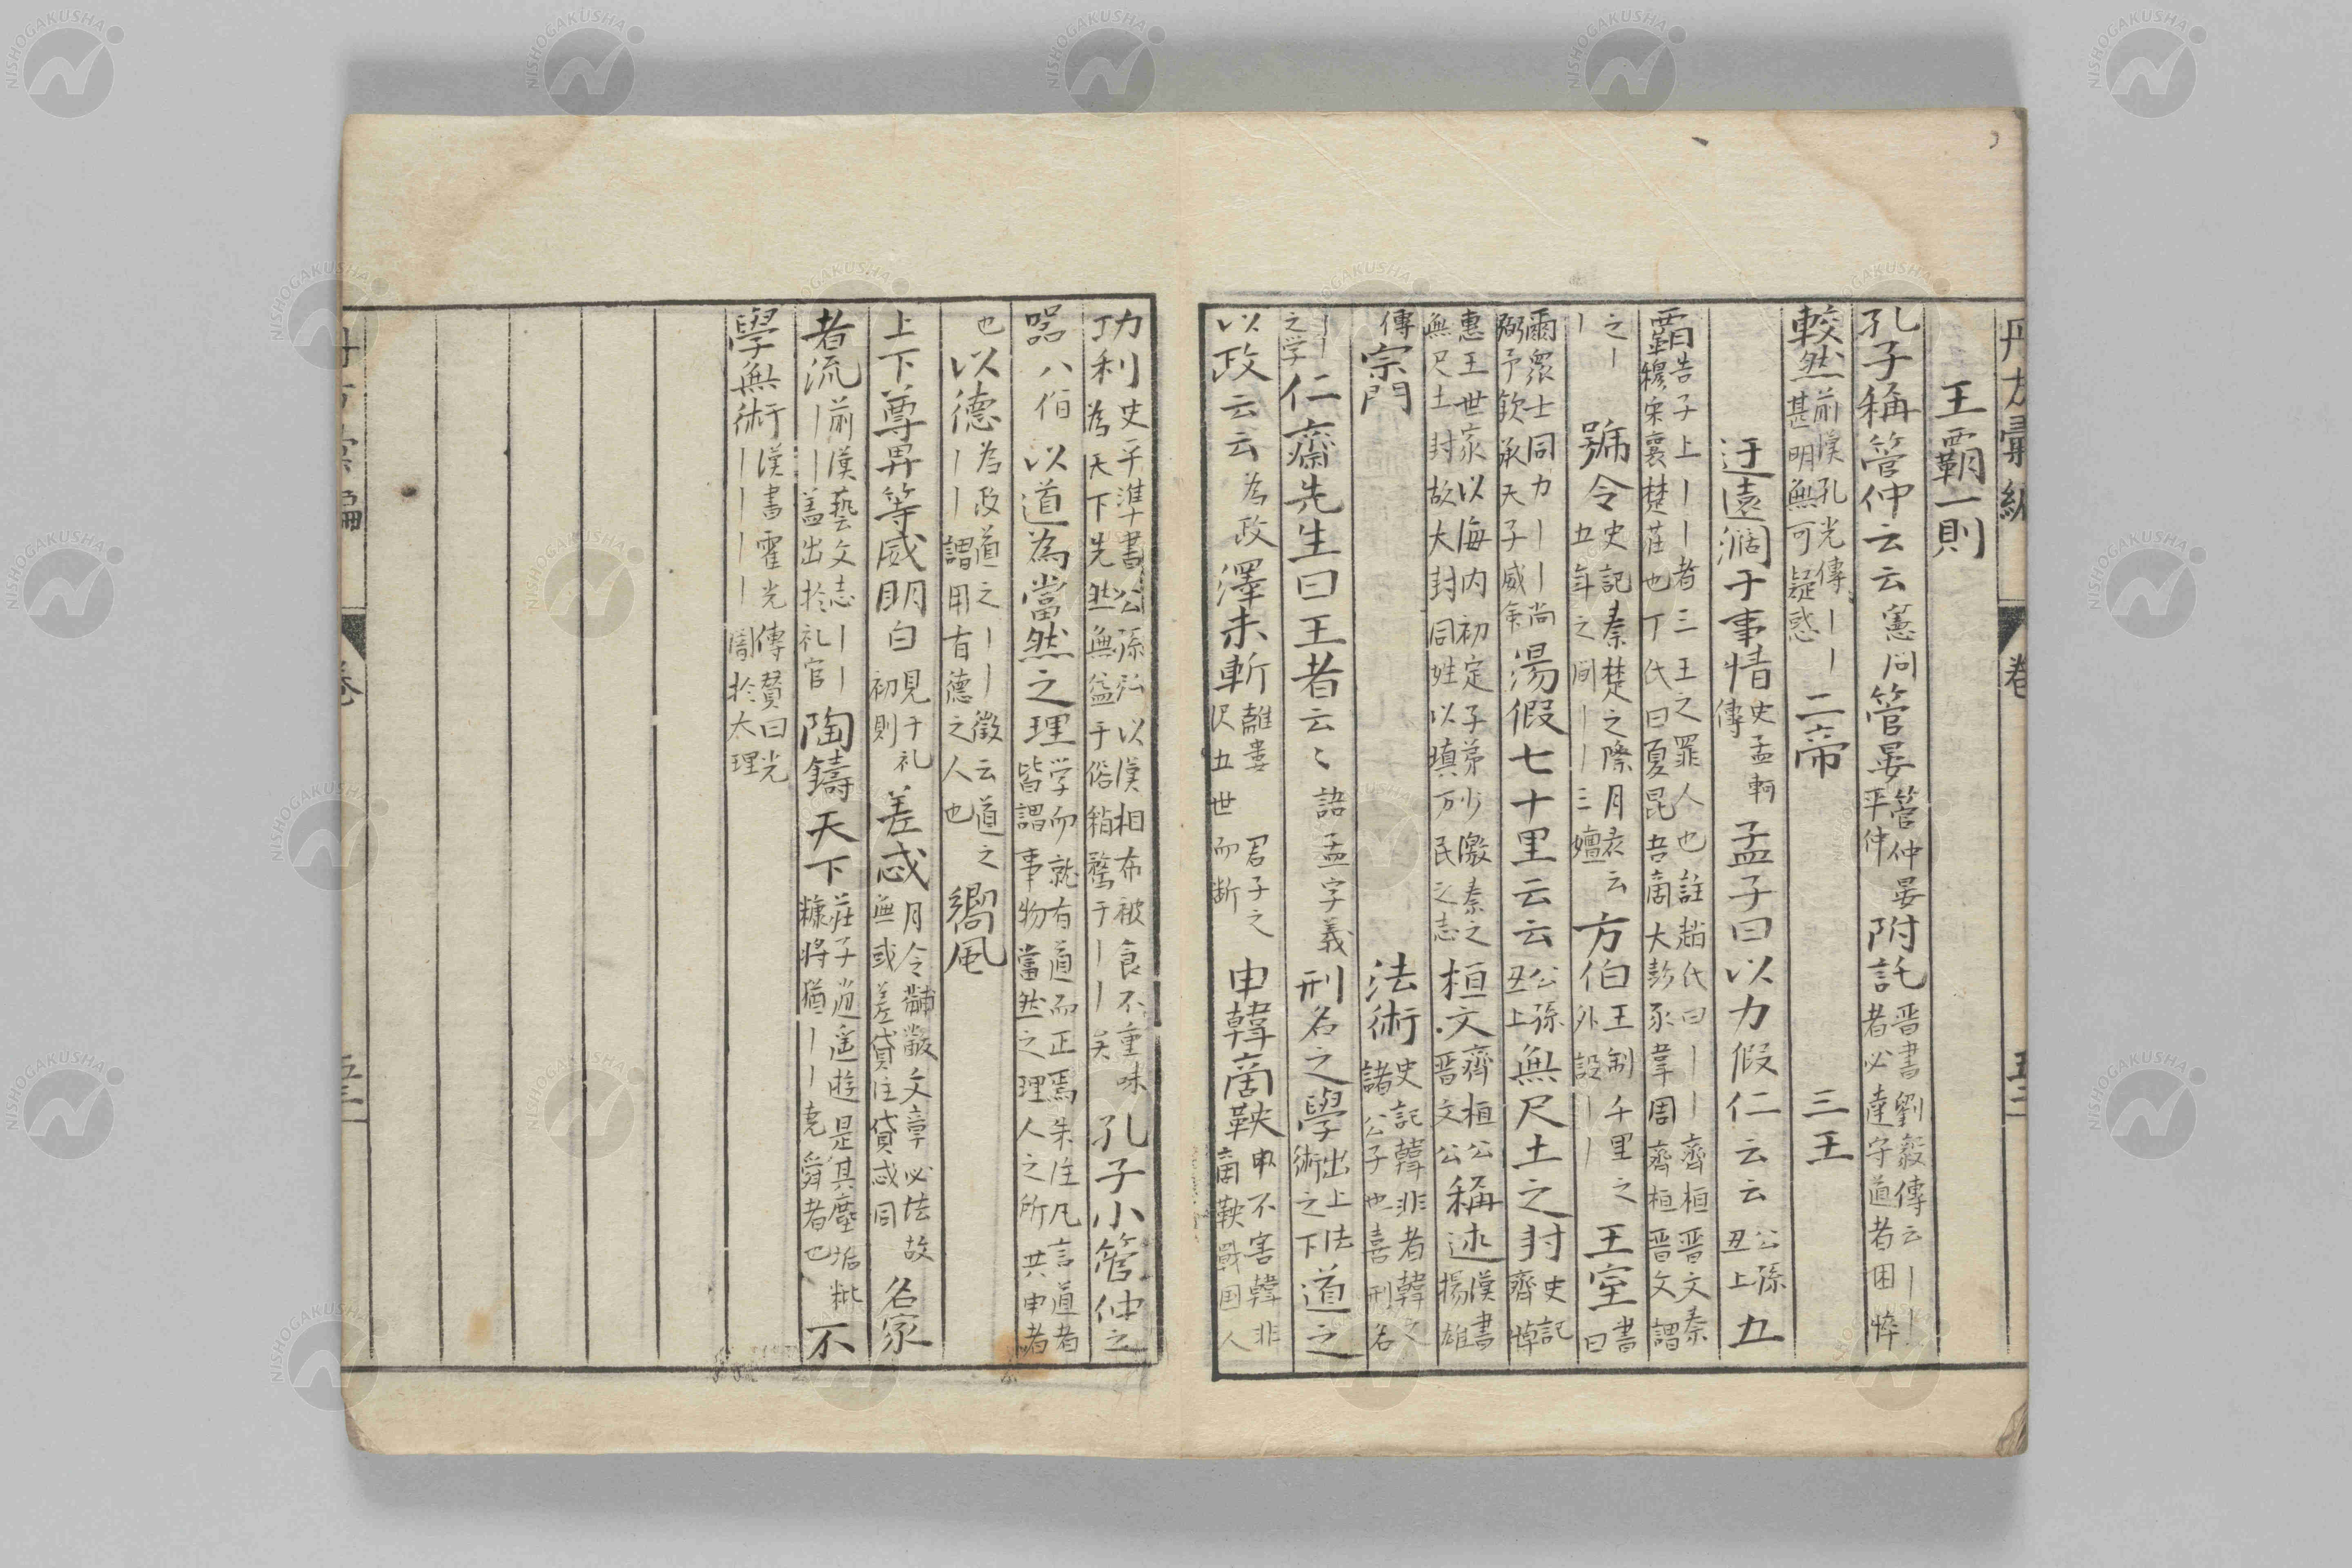 王霸一則
孔子稱管仲云云憲問管晏管仲晏平仲附託晋書劉毅傳云〡〡者必達守道者困悴
較然前漢孔光傳〡〡甚明無可疑惑二帝 三王
迂遠濶于事情史孟軻傳孟子曰以力假仁云云公孫丑上五
霸告子上〡〡者三王之罪人也註趙氏曰〡〡齊桓晋文秦穆宋襄楚莊也丁氏曰夏昆吾商大彭豕韋周齊桓晋文謂
之〡〡號令史記秦楚之際月表云五年之間〡〡三嬗方伯王制千里之外設〡〡王室書曰
爾衆士同力〡〡尚弼予欽承天子威命湯假七十里云云公孫丑上無尺土之封史記齊悼
惠王世家以海内初定子弟少激秦之無尺土封故大封同姓以塡万民之志桓文齊桓公晋文公稱述漢書揚雄
傳宗門 法術史記韓非者韓之諸公子也喜刑名
〡〡之学仁齋先生曰王者云〻語孟字義刑名之學出上法術之下道之
以政云云為政澤未斬離婁君子之沢五世而断申韓商鞅申不害韓非商鞅戰国人
功利史平準書公孫弘以漢相布被食不重味為天下先然無益于俗稍騖于〡〡矣孔子小管仲之
器八佾以道為當然之理学而就有道而正焉朱注凡言道者皆謂事物當然之理人之所共由者
也以德為政道之〡〡徵云道之〡〡謂用有德之人也嚮風
上下尊卑等威明白見于礼初則差忒月令黼黻文章必法故無或差貸注貸忒同名家
者流前漢藝文志〡〡〡〡盖出於礼官陶鑄天下莊子逍遙遊是其塵垢粃糠將猶〡〡堯舜者也不
學無術漢書霍光傳賛曰光〡〡〡〡闇於太理